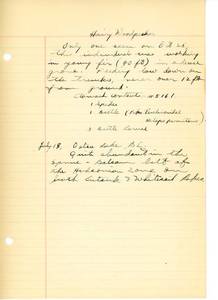 Hairy Woodpecker
Only one seen on 6 B 25
This individual was working
in young fir (40 ft) in a dense
grove. Feeding low down on
the trunks, never over 12 ft
from ground.
Stomach contents #5161
1 spider
1 Beetle
3 Beetle larvae
July 18, Lake B.C.
Quite abundant in the
spruce - balsam belt of
the Hudsonian zone on
south Whitesail Lake